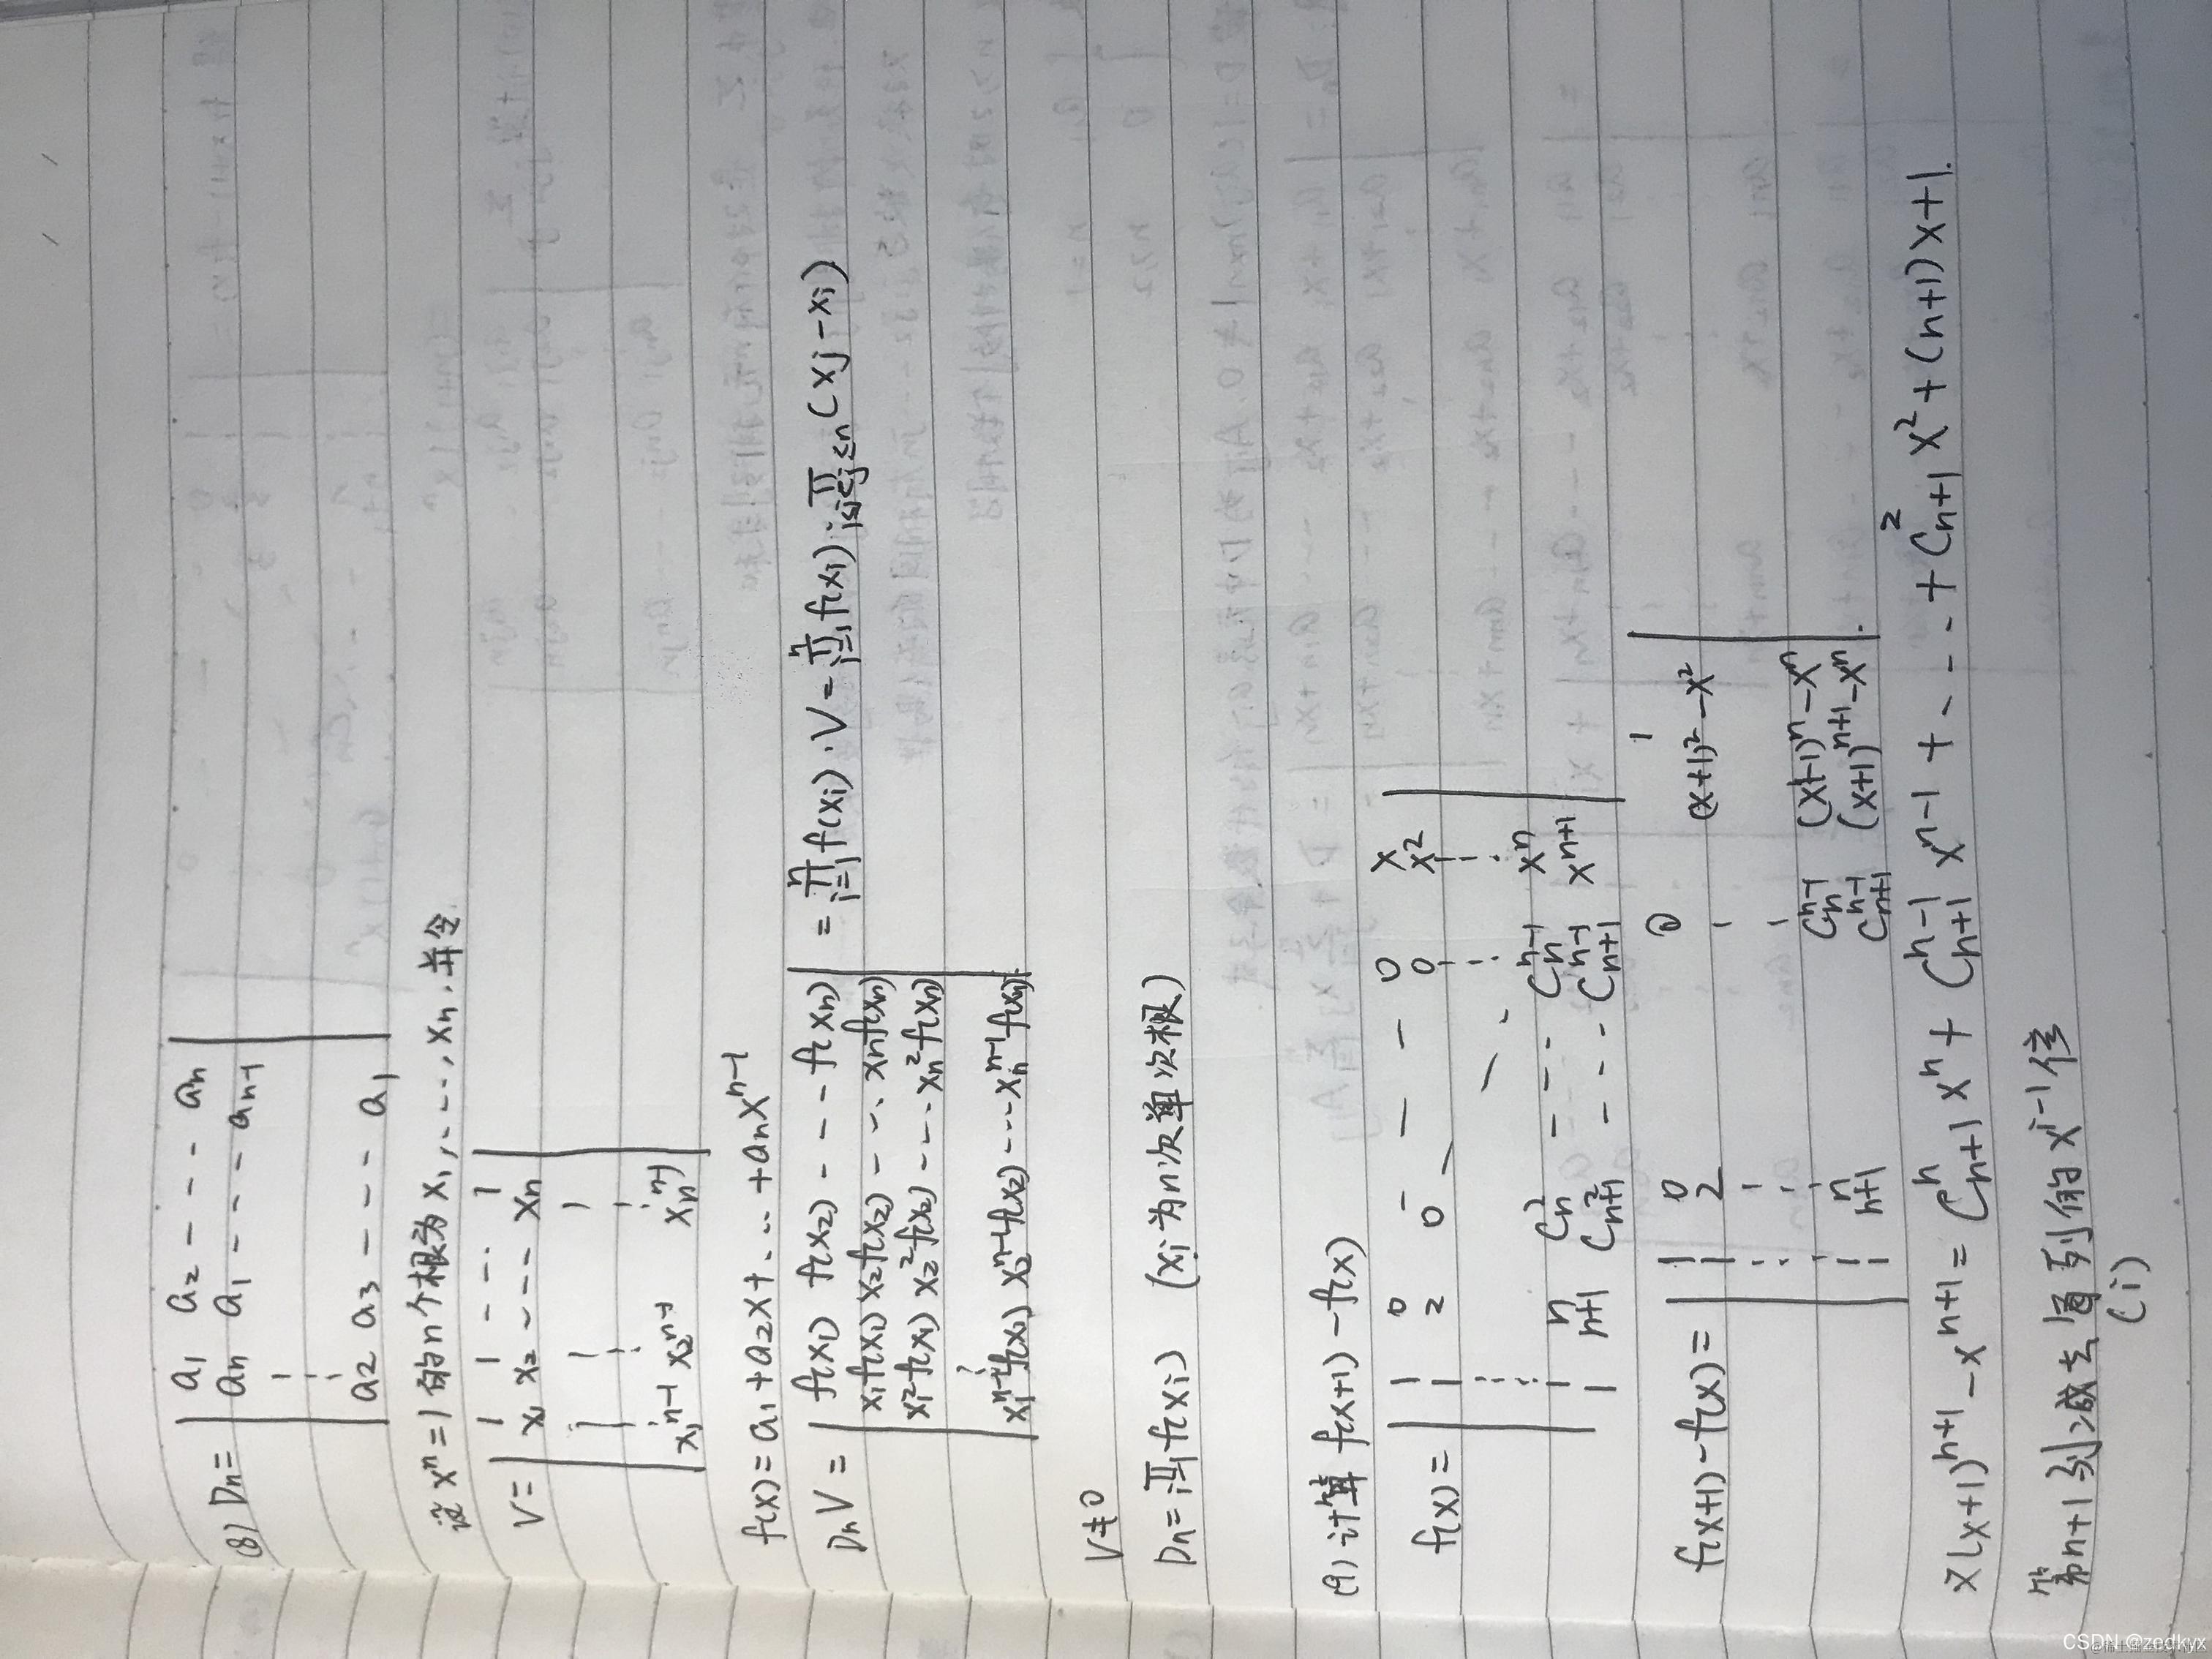 (8) Dn= | a1 a2 - - - an |
| an a1 - - - an-1 |
| a2 a3 - - - a1 |
设 xⁿ=1 的n个根为 x1, ..., xn, 并令
V= | 1 1 - - - 1 |
| x1 x2 - - - xn |
| x1ⁿ⁻¹ x2ⁿ⁻¹ xnⁿ⁻¹ |
f(x)= a1+a2x+...+anxⁿ⁻¹
DnV = | f(x1) f(x2) - - - f(xn) | = ∏ⁿᵢ₌₁ f(xi)·V = ∏ⁿᵢ₌₁ f(xi)· ∏ 1≤i<j≤n (xj-xi)
| x1f(x1) x2f(x2) - - - xnf(xn) |
| x1²f(x1) x2²f(x2) - - - xn²f(xn) |
| x1ⁿ⁻¹f(x1) x2ⁿ⁻¹f(x2) - - - xnⁿ⁻¹f(xn) |
V≠0
Dn= ∏ⁿᵢ₌₁ f(xi) (xi为n次单次根)
(9) 计算 f(x+1)-f(x)
f(x)= | 1 0 - - - 0 x |
| 1 2 0 - - - 0 x² |
| 1 n Cn² - - - Cnⁿ⁻¹ xⁿ |
| 1 n+1 Cn+1² - - - Cn+1ⁿ⁻¹ xⁿ⁺¹ |
f(x+1)-f(x)= | 1 0 0 1 |
| 1 2 (x+1)²-x² |
| 1 n Cnⁿ⁻¹ (x+1)ⁿ-xⁿ |
| 1 n+1 Cn+1ⁿ⁻¹ (x+1)ⁿ⁺¹-xⁿ⁺¹ |.
又(x+1)ⁿ⁺¹-xⁿ⁺¹= Cn+1ⁿ xⁿ + Cn+1ⁿ⁻¹ xⁿ⁻¹ + - - - + Cn+1² x² + (n+1)x+1.
第n+1列减去首列的 xⁱ⁻¹倍
(i)
CSDN @zedkyx